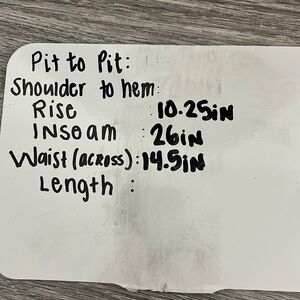 Pit to Pit:
Shoulder to hem:
Rise : 10.25in
Inseam : 26in
Waist (across): 14.5in
Length :